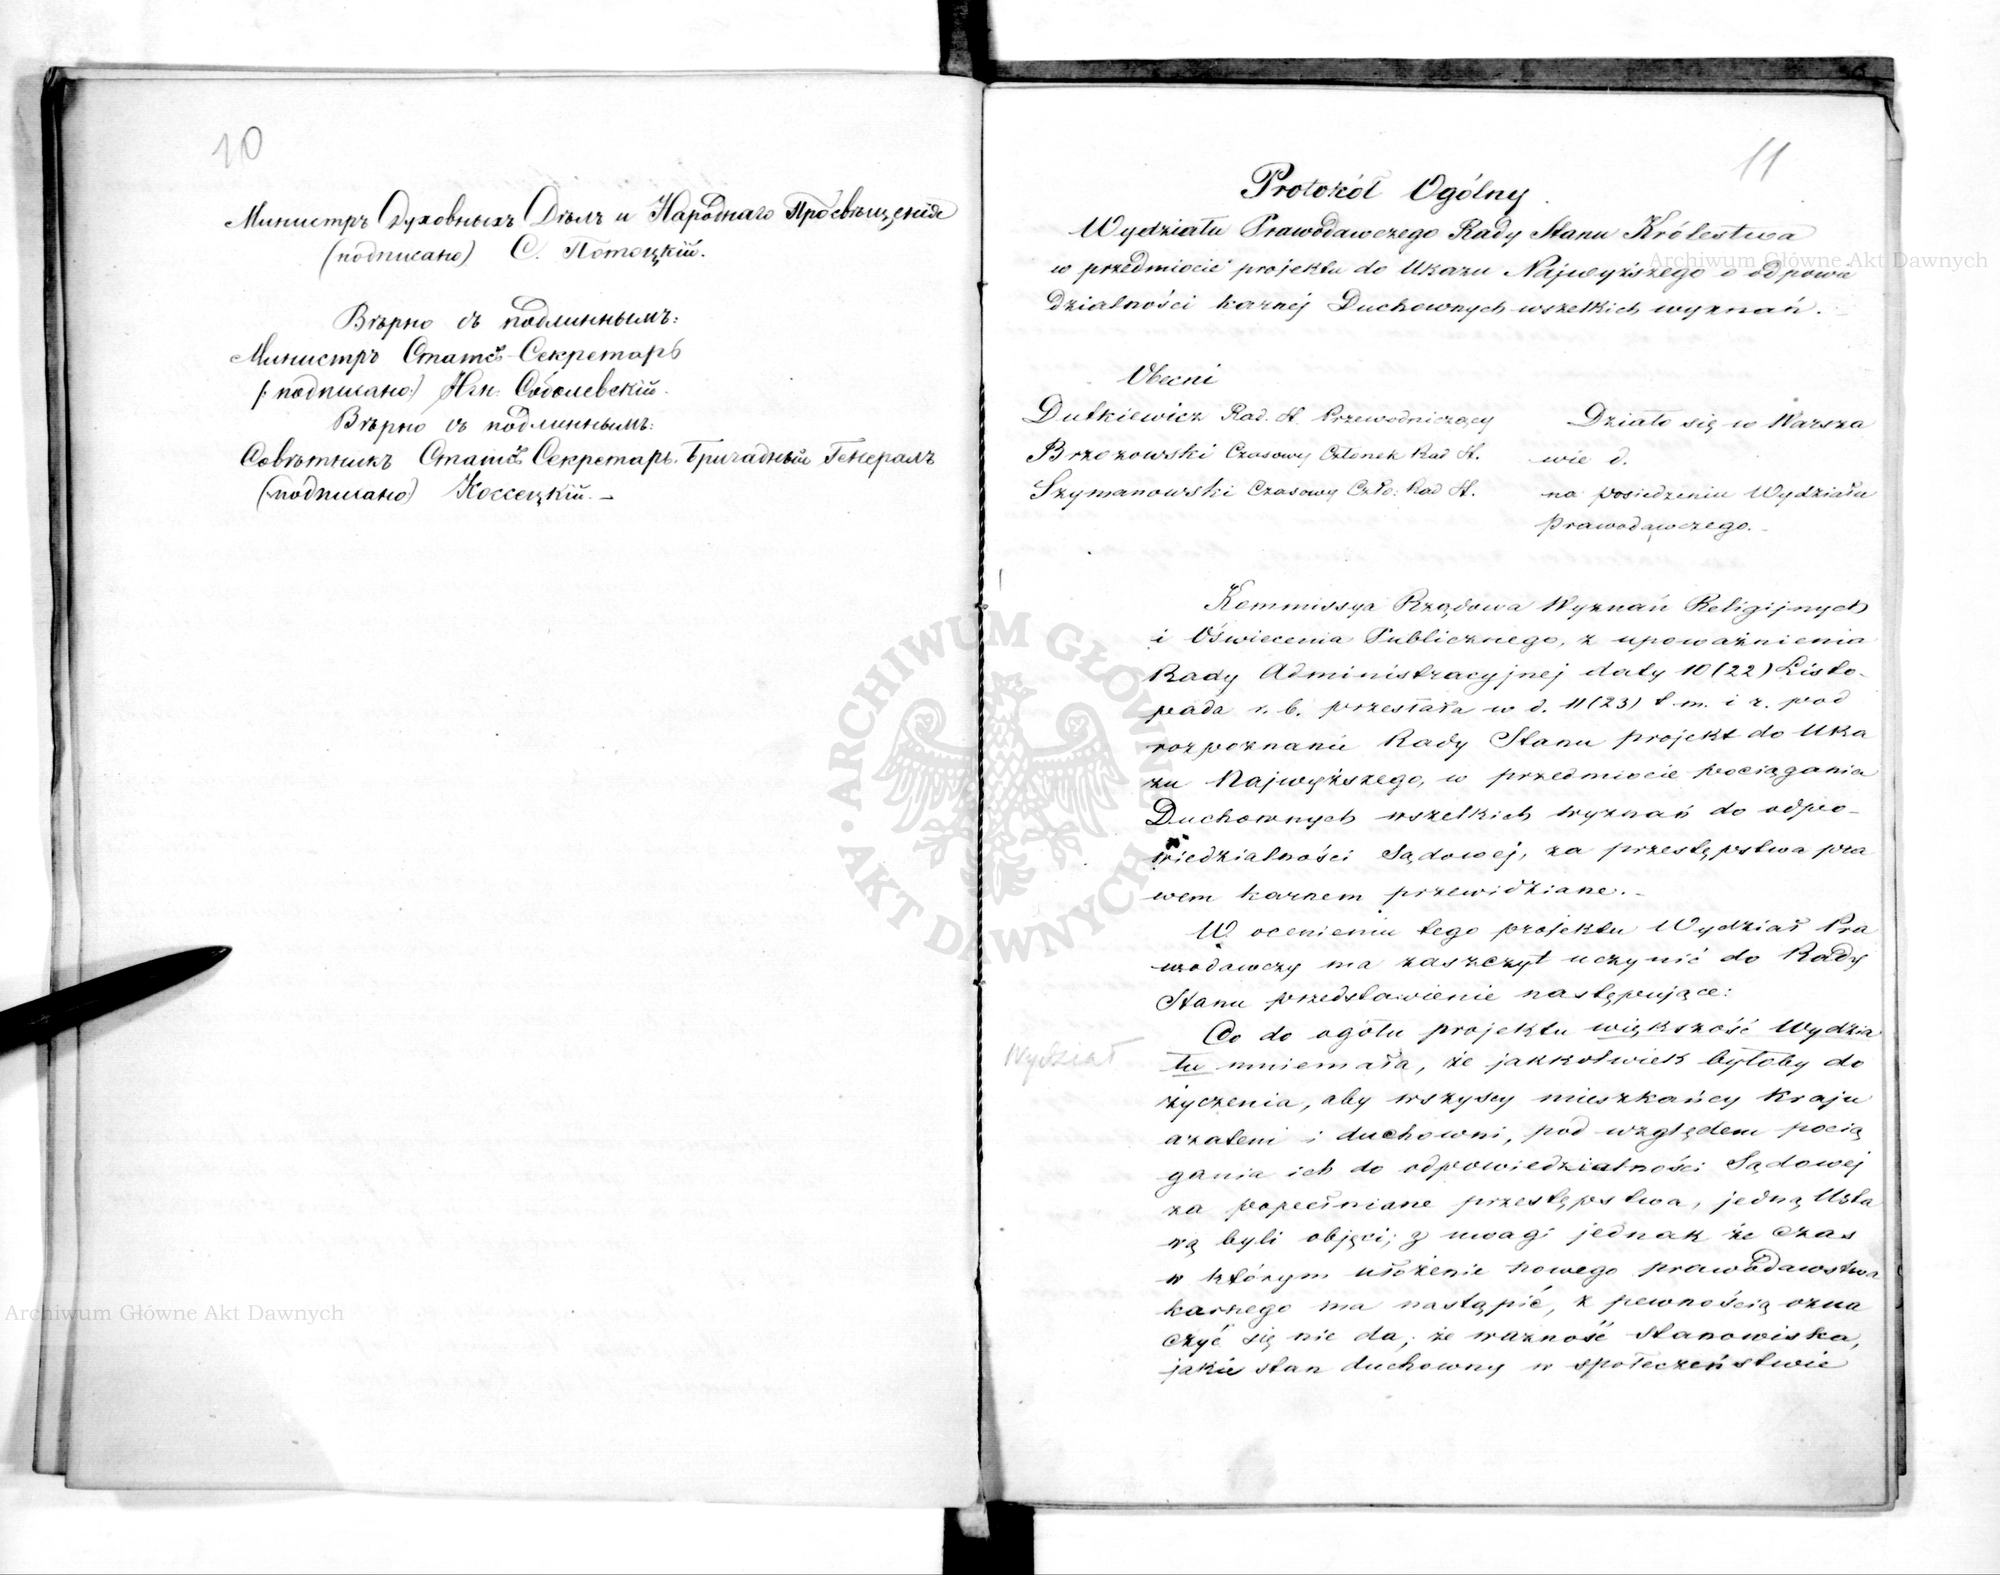 10
Министръ Духовныхъ Дѣлъ и Народнаго Просвѣщенія
(подписано) С. Потоцкій.
Вѣрно съ подлиннымъ:
Министръ Статсъ-Секретарь
(:подписано:) Игн. Соболевскій.
Вѣрно съ подлиннымъ:
Совѣтникъ Статсъ Секретарь. Бригадный Генералъ
(подписано) Коссецкій. –
11
Protokół Ogólny
Wydziału Prawodawczego Rady Stanu Królestwa
w przedmiocie projektu do Ukazu Najwyższego o odpowie
dzialności karnéj Duchownych wszelkich wyznań.
Obecni
Dutkiewicz Rad. St. Przewodniczący
Brzozowski Czasowy Członek Rad St.
Szymanowski Czasowy Czło: Rad St.
Działo się w Warsza
wie d.
na posiedzeniu Wydziału
Prawodawczego. –
Kommissya Rządowa Wyznań Religijnych
i Oświecenia Publicznego, z upoważnienia
Rady Administracyjnej daty 10 (22) Listo-
pada r. b. przesłała w d. 11 (23) t. m. i r. pod
rozpoznanie Rady Stanu projekt do Uka
zu Najwyższego, w przedmiocie pociągania
Duchownych wszelkich wyznań do odpo-
wiedzialności Sądowej, za przestępstwa pra
wem karnem przewidziane. –
W ocenieniu tego projektu Wydział Pra
wodawczy ma zaszczyt uczynić do Rady
Stanu przedstawienie następujące:
Co do ogółu projektu większość Wydzia
łu mniemała, że jakkolwiek byłoby do
Wydział
życzenia, aby wszyscy mieszkańcy Kraju
azatem i duchowni, pod względem pocią
gania ich do odpowiedzialności Sądowej
za popełniane przestępstwa, jedną Usta
wą byli objęci; z uwagi jednak że czas
w którym ułożenie nowego prawodawstwa
karnego ma nastąpić, z pewnością ozna
czyć się nie da, że ważność stanowiska,
jakie stan duchowny w społeczeństwie
Archiwum Główne Akt Dawnych
Archiwum Główne Akt Dawnych
ARCHIWUM GŁÓWNE AKT DAWNYCH